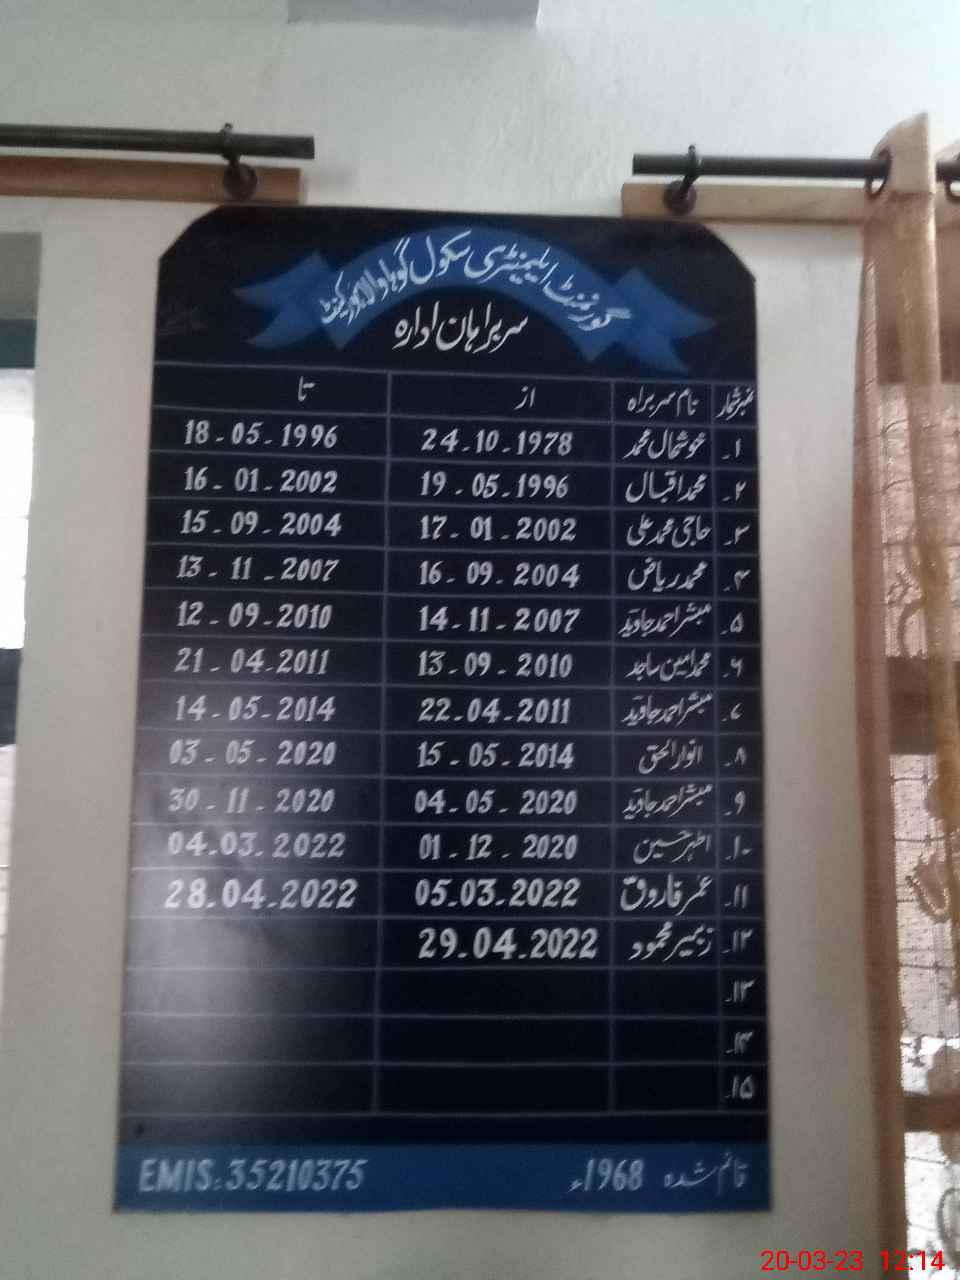 گورنمنٹ ایلیمنٹری سکول گوہاوا لاہور کینٹ
سربراہان ادارہ
نمبر شمار نام سربراہ از تا
۱۔ خوشحال محمد 24.10.1978 18-05-1996
۲۔ محمد اقبال 19-05-1996 16-01-2002
۳۔ حاجی محمد علی 17-01-2002 15-09-2004
۴۔ محمد ریاض 16-09-2004 13-11-2007
۵۔ مبشر احمد جاوید 14-11-2007 12-09-2010
۶۔ محمد امین ساجد 13-09-2010 21-04-2011
۷۔ مبشر احمد جاوید 22-04-2011 14-05-2014
۸۔ انوار الحق 15-05-2014 03-05-2020
۹۔ مبشر احمد جاوید 04-05-2020 30-11-2020
۱۰۔ اطہر حسین 01-12-2020 04.03.2022
۱۱۔ عمر فاروق 05.03.2022 28.04.2022
۱۲۔ زبیر محمود 29.04.2022
۱۳۔
۱۴۔
۱۵۔
قائم شدہ 1968ء EMIS:35210375
20-03-23 12:14